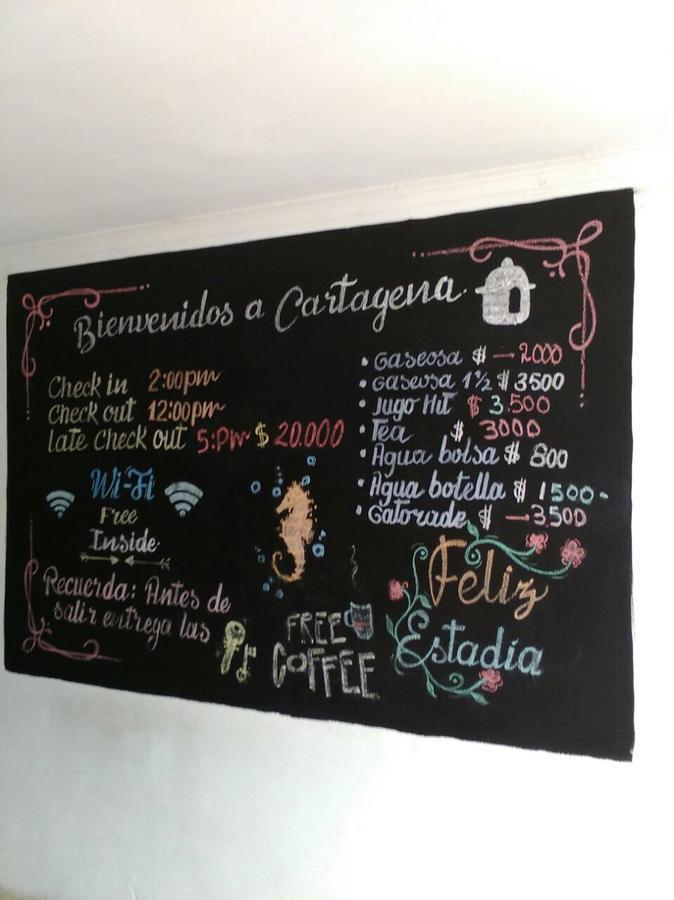 Bienvenidos a Cartagena
Check in 2:00pm
Check out 12:00pm
Late Check out 5:Pm $ 20.000
Wi-Fi
Free
Inside
Recuerda: Antes de
salir entrega las
FREE
COFFEE
• Gaseosa $ — 2000
• Gaseosa 1½ $ 3500
• Jugo Hit $ 3.500
• Tea $ 3000
• Agua bolsa $ 800
• Agua botella $ 1500-
• Gatorade $ — 3,500
Feliz
Estadía